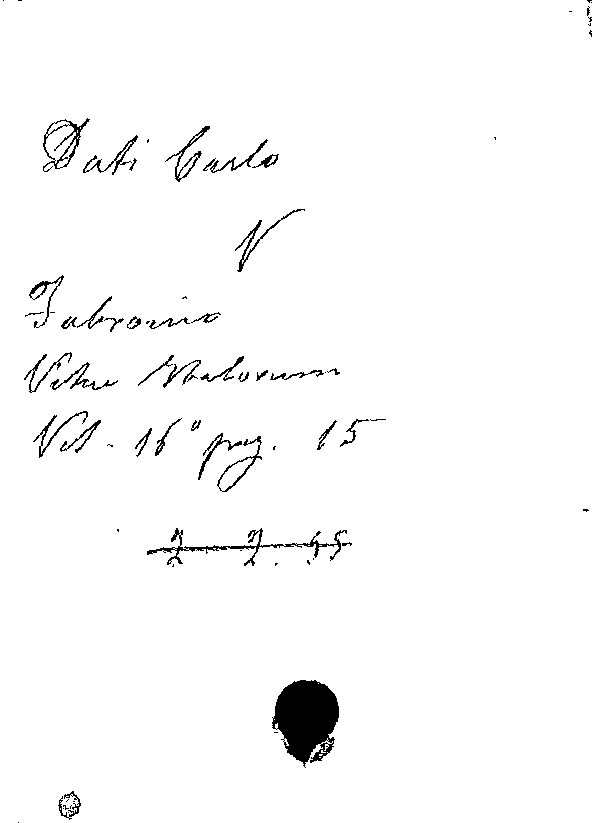 Dati Carlo
V
Fabronio
Vitae Italorum
Vol. 16° pag. 15
2 2. 55